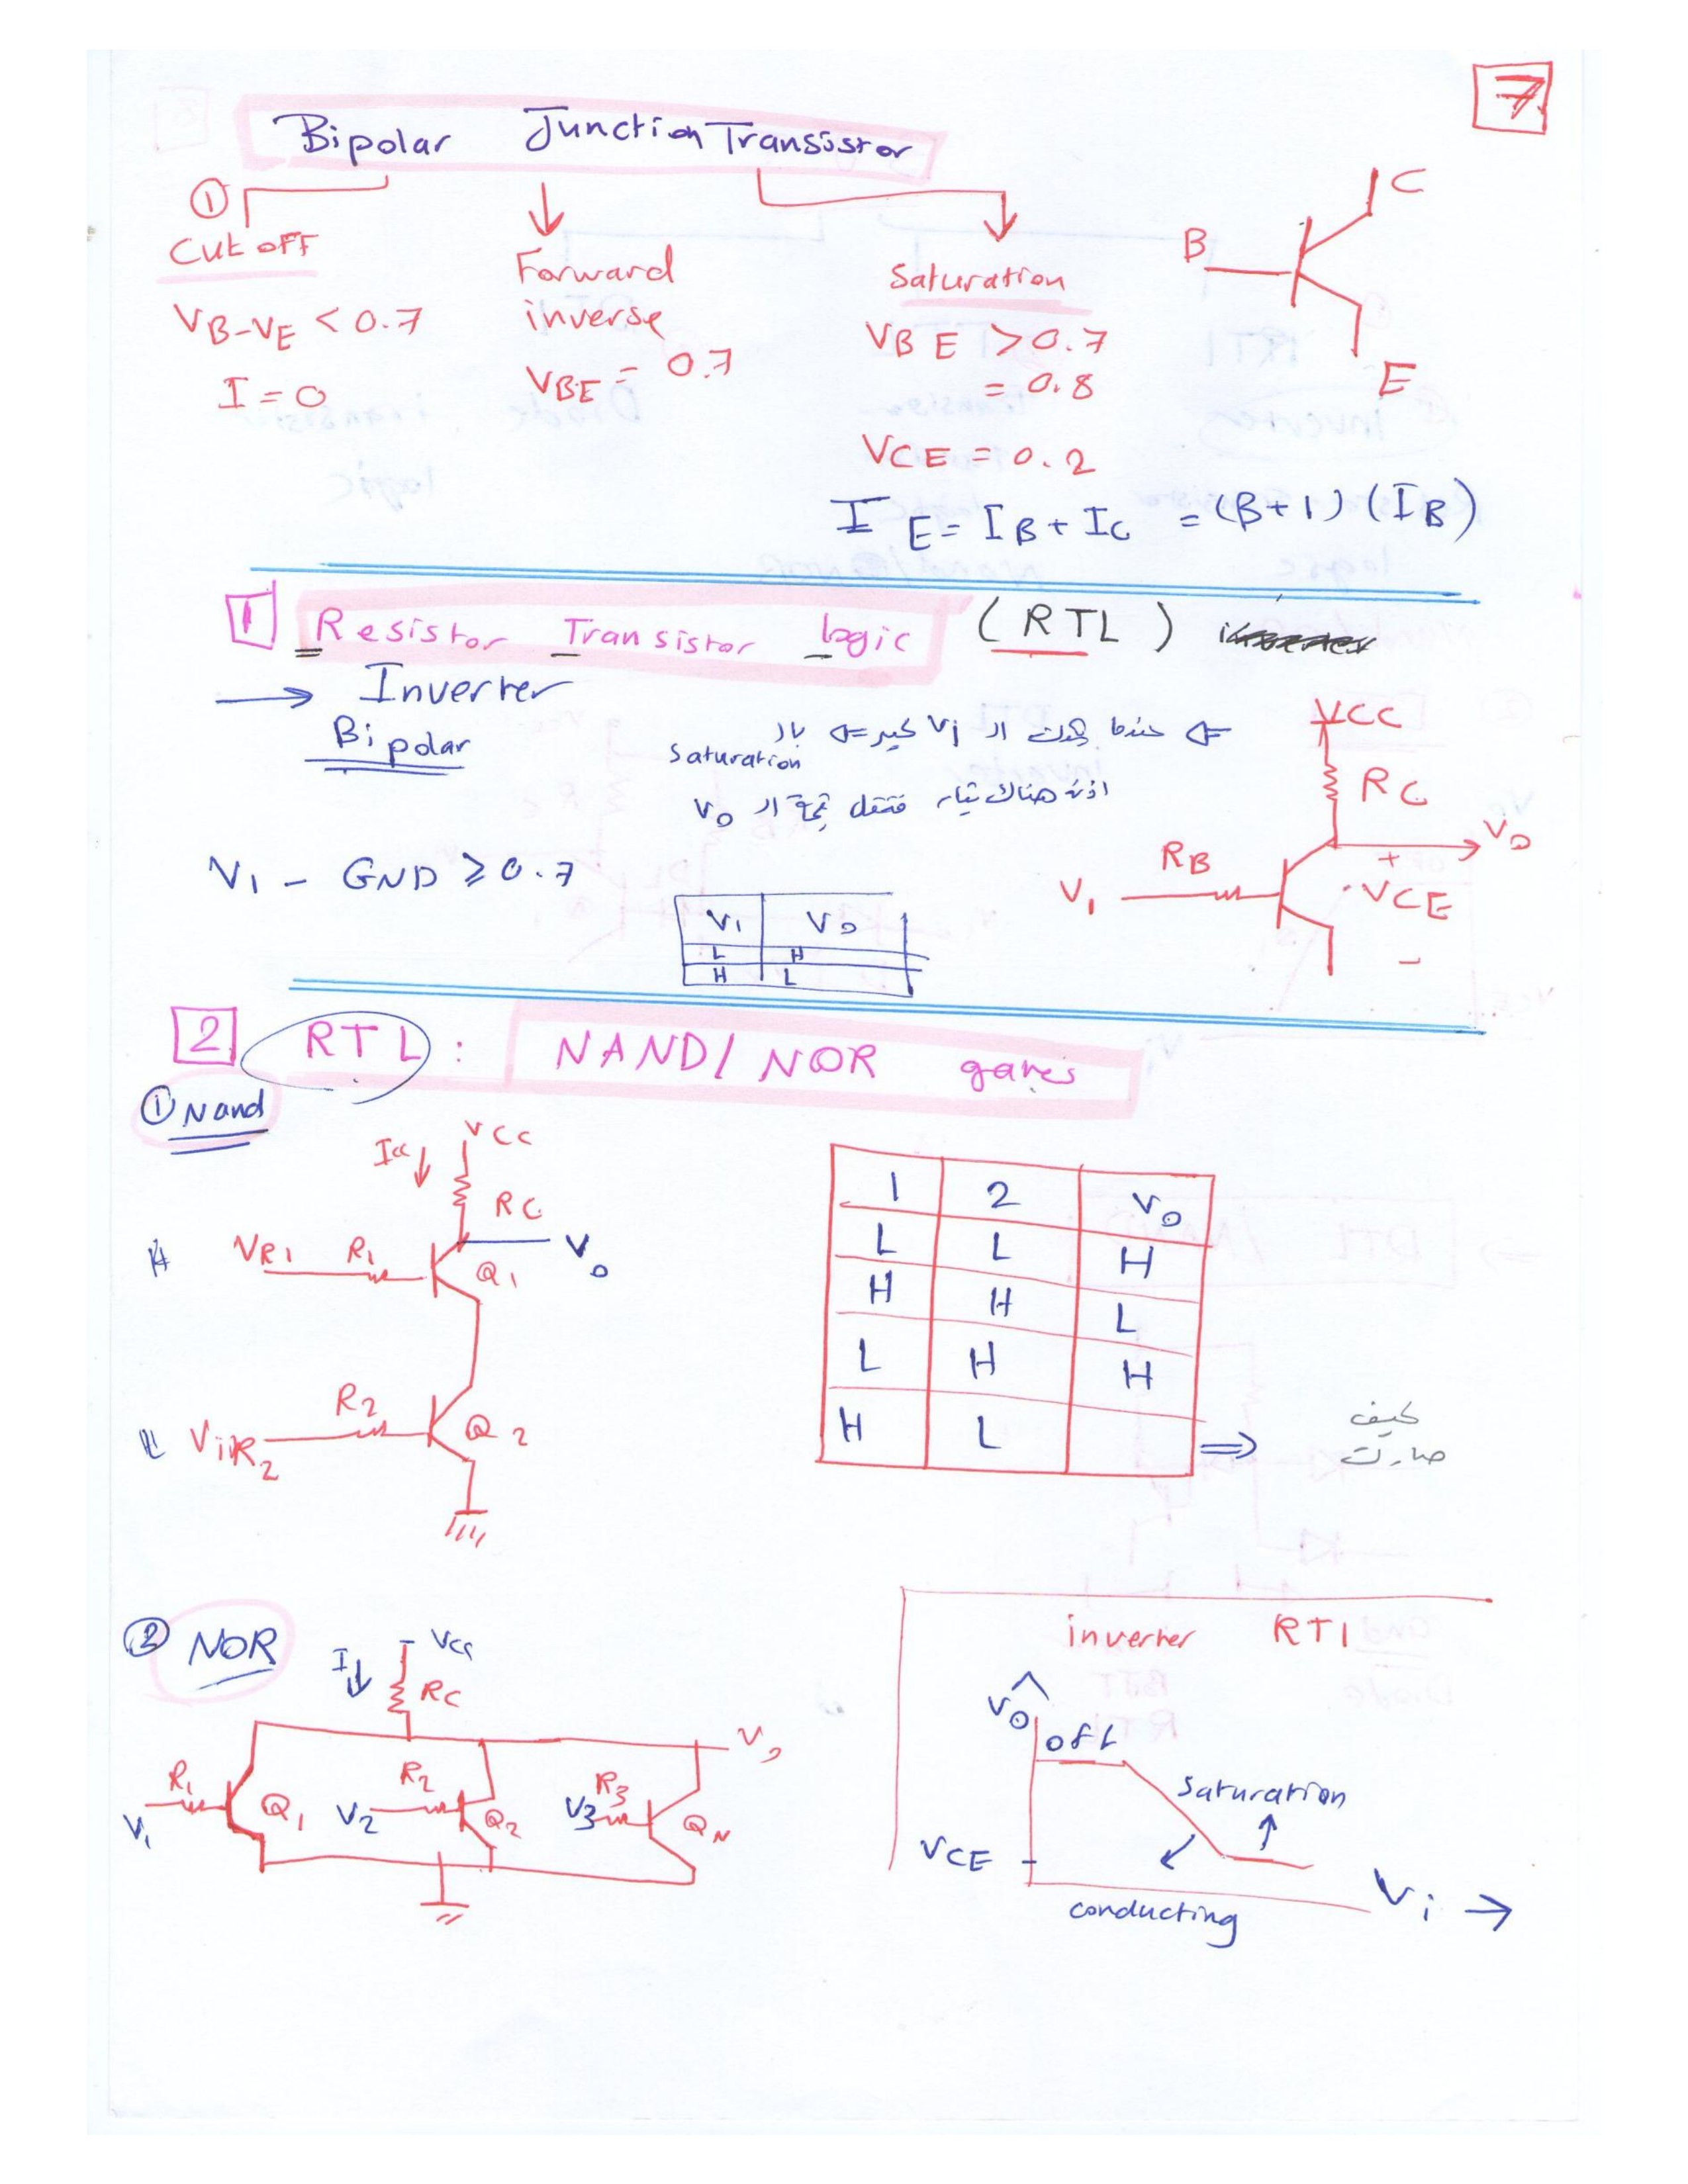 7
Bipolar Junction Transistor
①
Cut off
VB-VE < 0.7
I = 0
Forward
inverse
VBE = 0.7
Saturation
VBE > 0.7
= 0.8
VCE = 0.2
IE = IB + IC = (B+1) (IB)
B
C
E
1 Resistor Transistor logic (RTL)
→ Inverter
Bipolar
⇐ عندما يكون الـ Vi كبير ⇐
Saturation
هناك تيار
Vo
V1 - GND ⩾ 0.7
V1 Vo
L H
H L
VCC
RC
Vo
RB
V1
+
VCE
-
2 RTL : NAND/NOR gates
① Nand
VCC
Icc ↓
RC
Vo
H VR1 R1 Q1
R2
L ViR2 Q2
1 2 Vo
L L H
H H L
L H H
H L
⇒ كيف
صارت
② NOR
I ↓ Vcc
RC
Vo
R1 R2 R3
V1 Q1 V2 Q2 V3 QN
inverter RTL
Vo
off
Saturation
VCE
Vi →
conducting